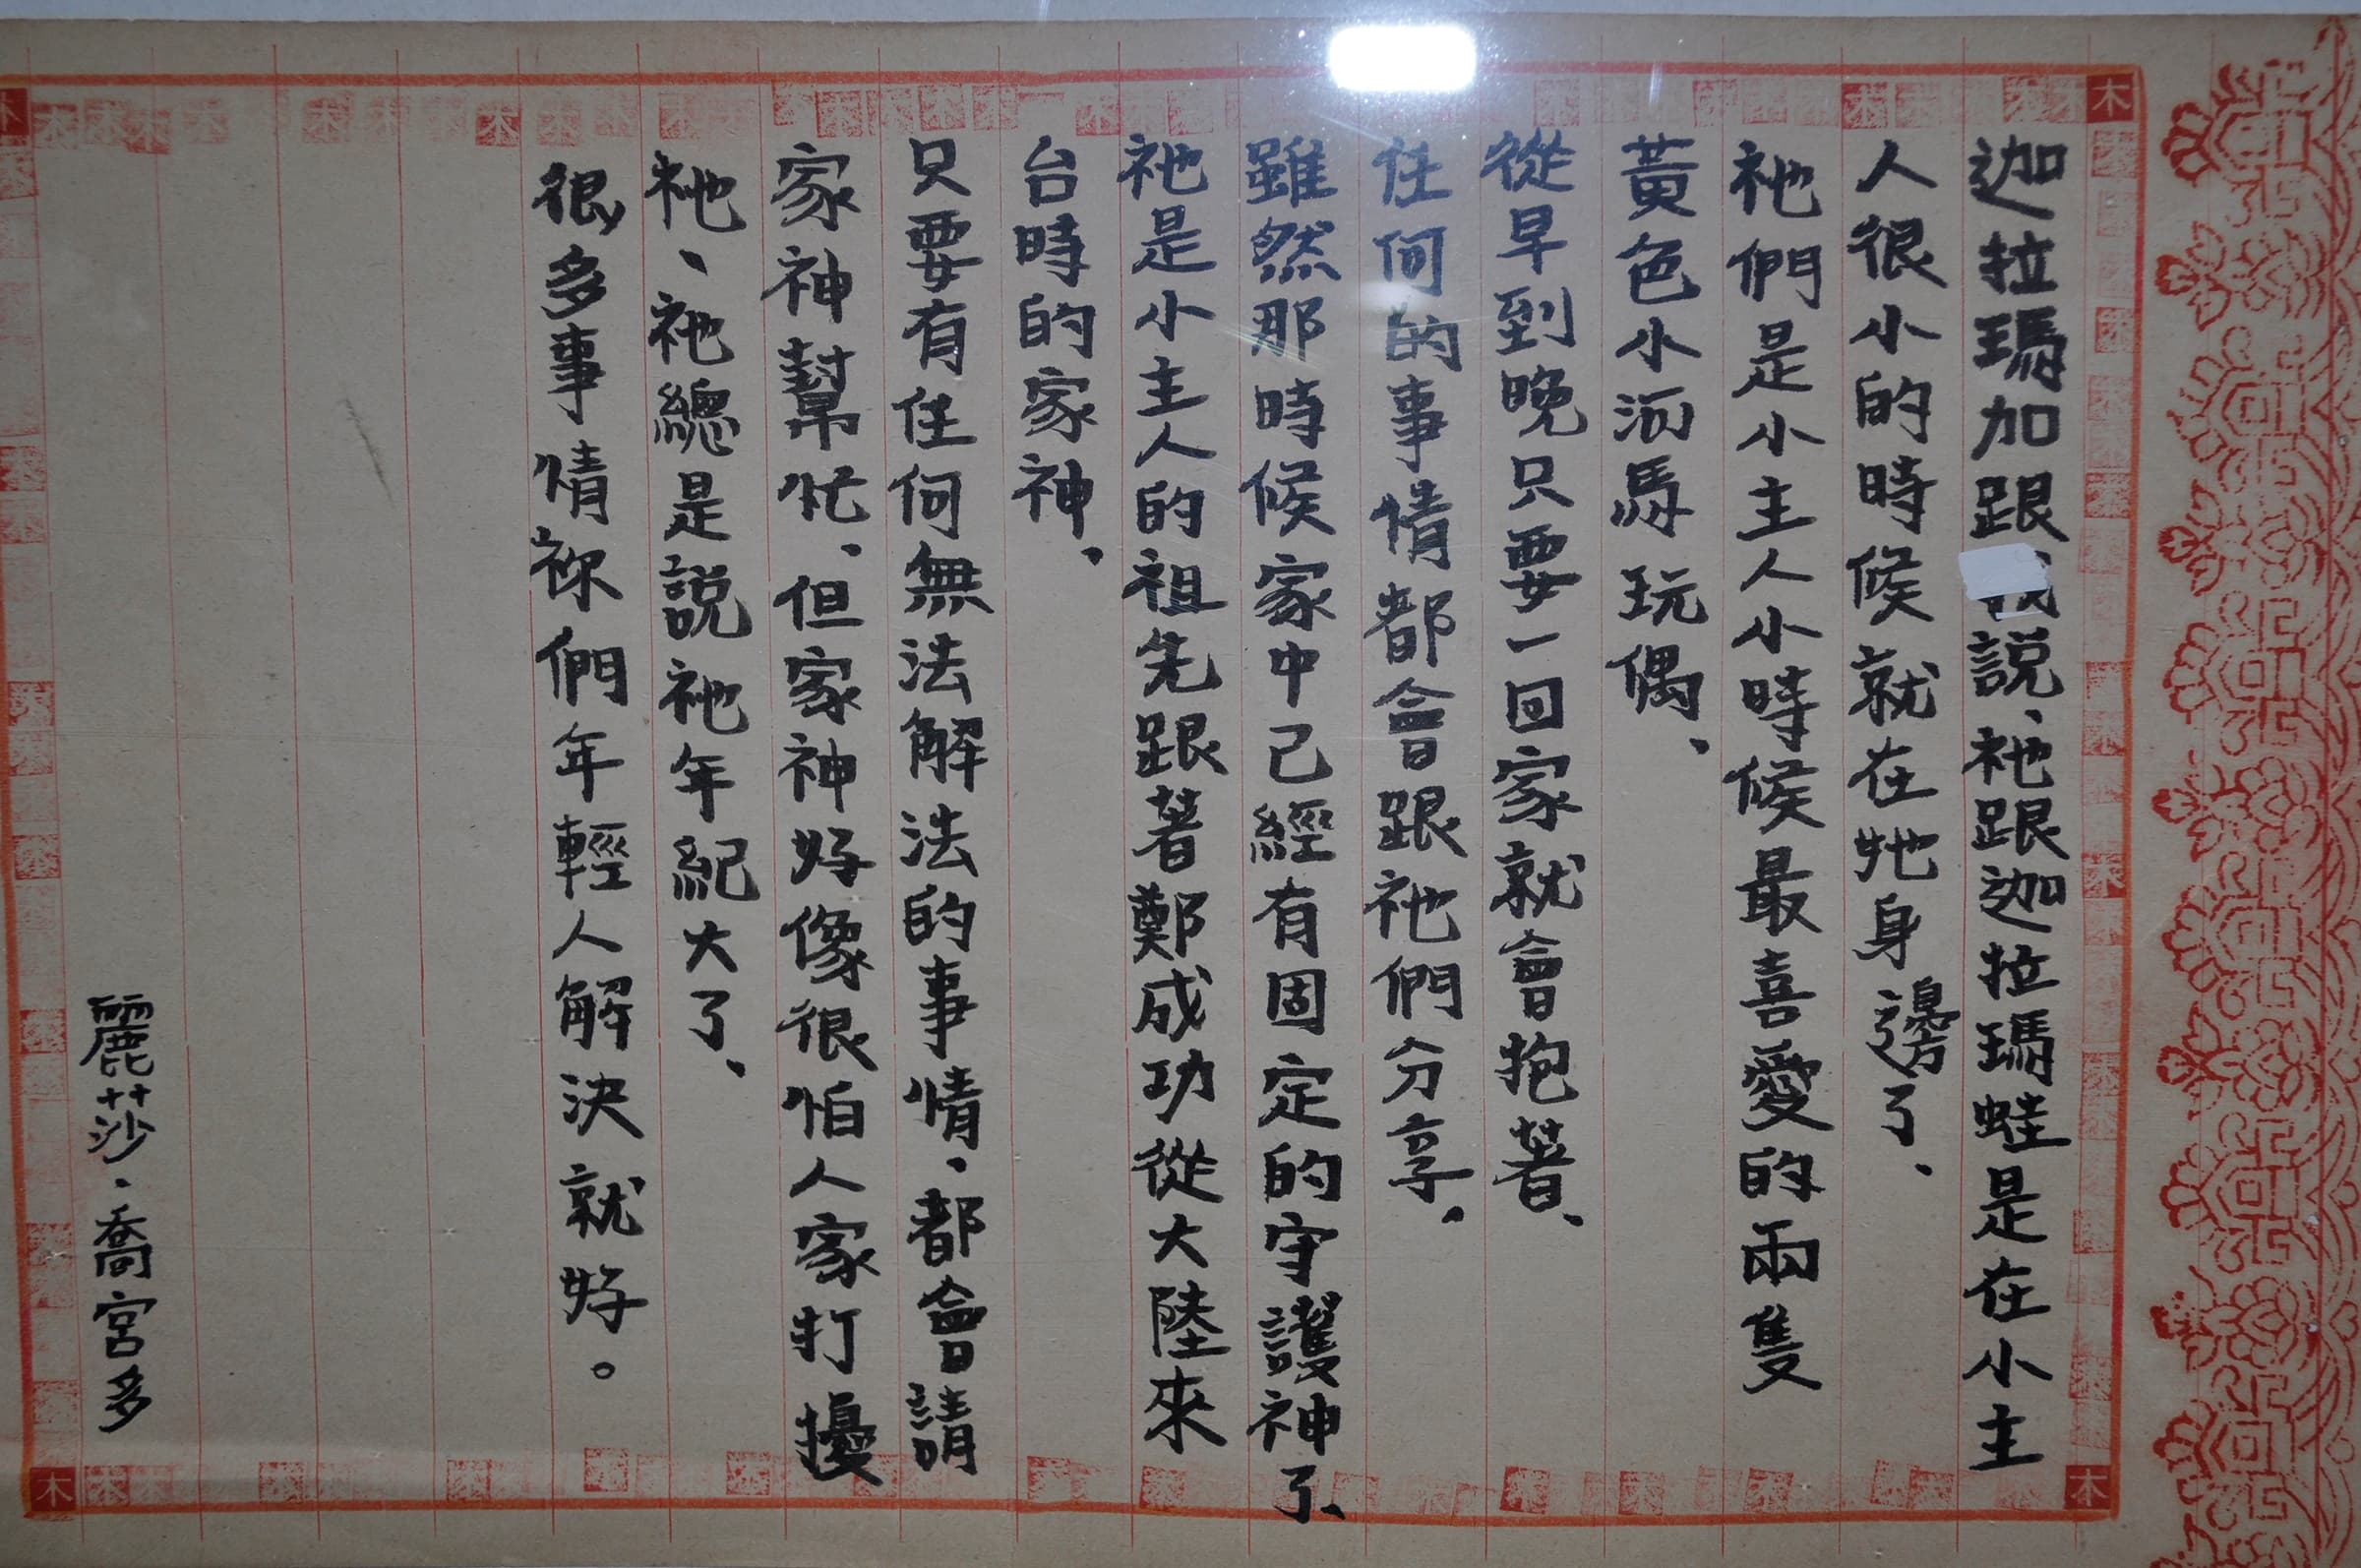 迦拉瑪加跟我説、祂跟迦拉瑪蛙是在小主
人很小的時候就在牠身邊了、
祂們是小主人小時候最喜愛的兩隻
黃色小河馬玩偶、
從早到晚只要一回家就會抱著、
任何的事情都會跟祂們分享、
雖然那時候家中己經有固定的守護神了、
祂是小主人的祖先跟著鄭成功從大陸來
台時的家神、
只要有任何無法解法的事情、都會請
家神幫忙、但家神好像很怕人家打擾
祂、祂總是説祂年紀大了、
很多事情祢們年輕人解決就好。
麗莎、喬宮多